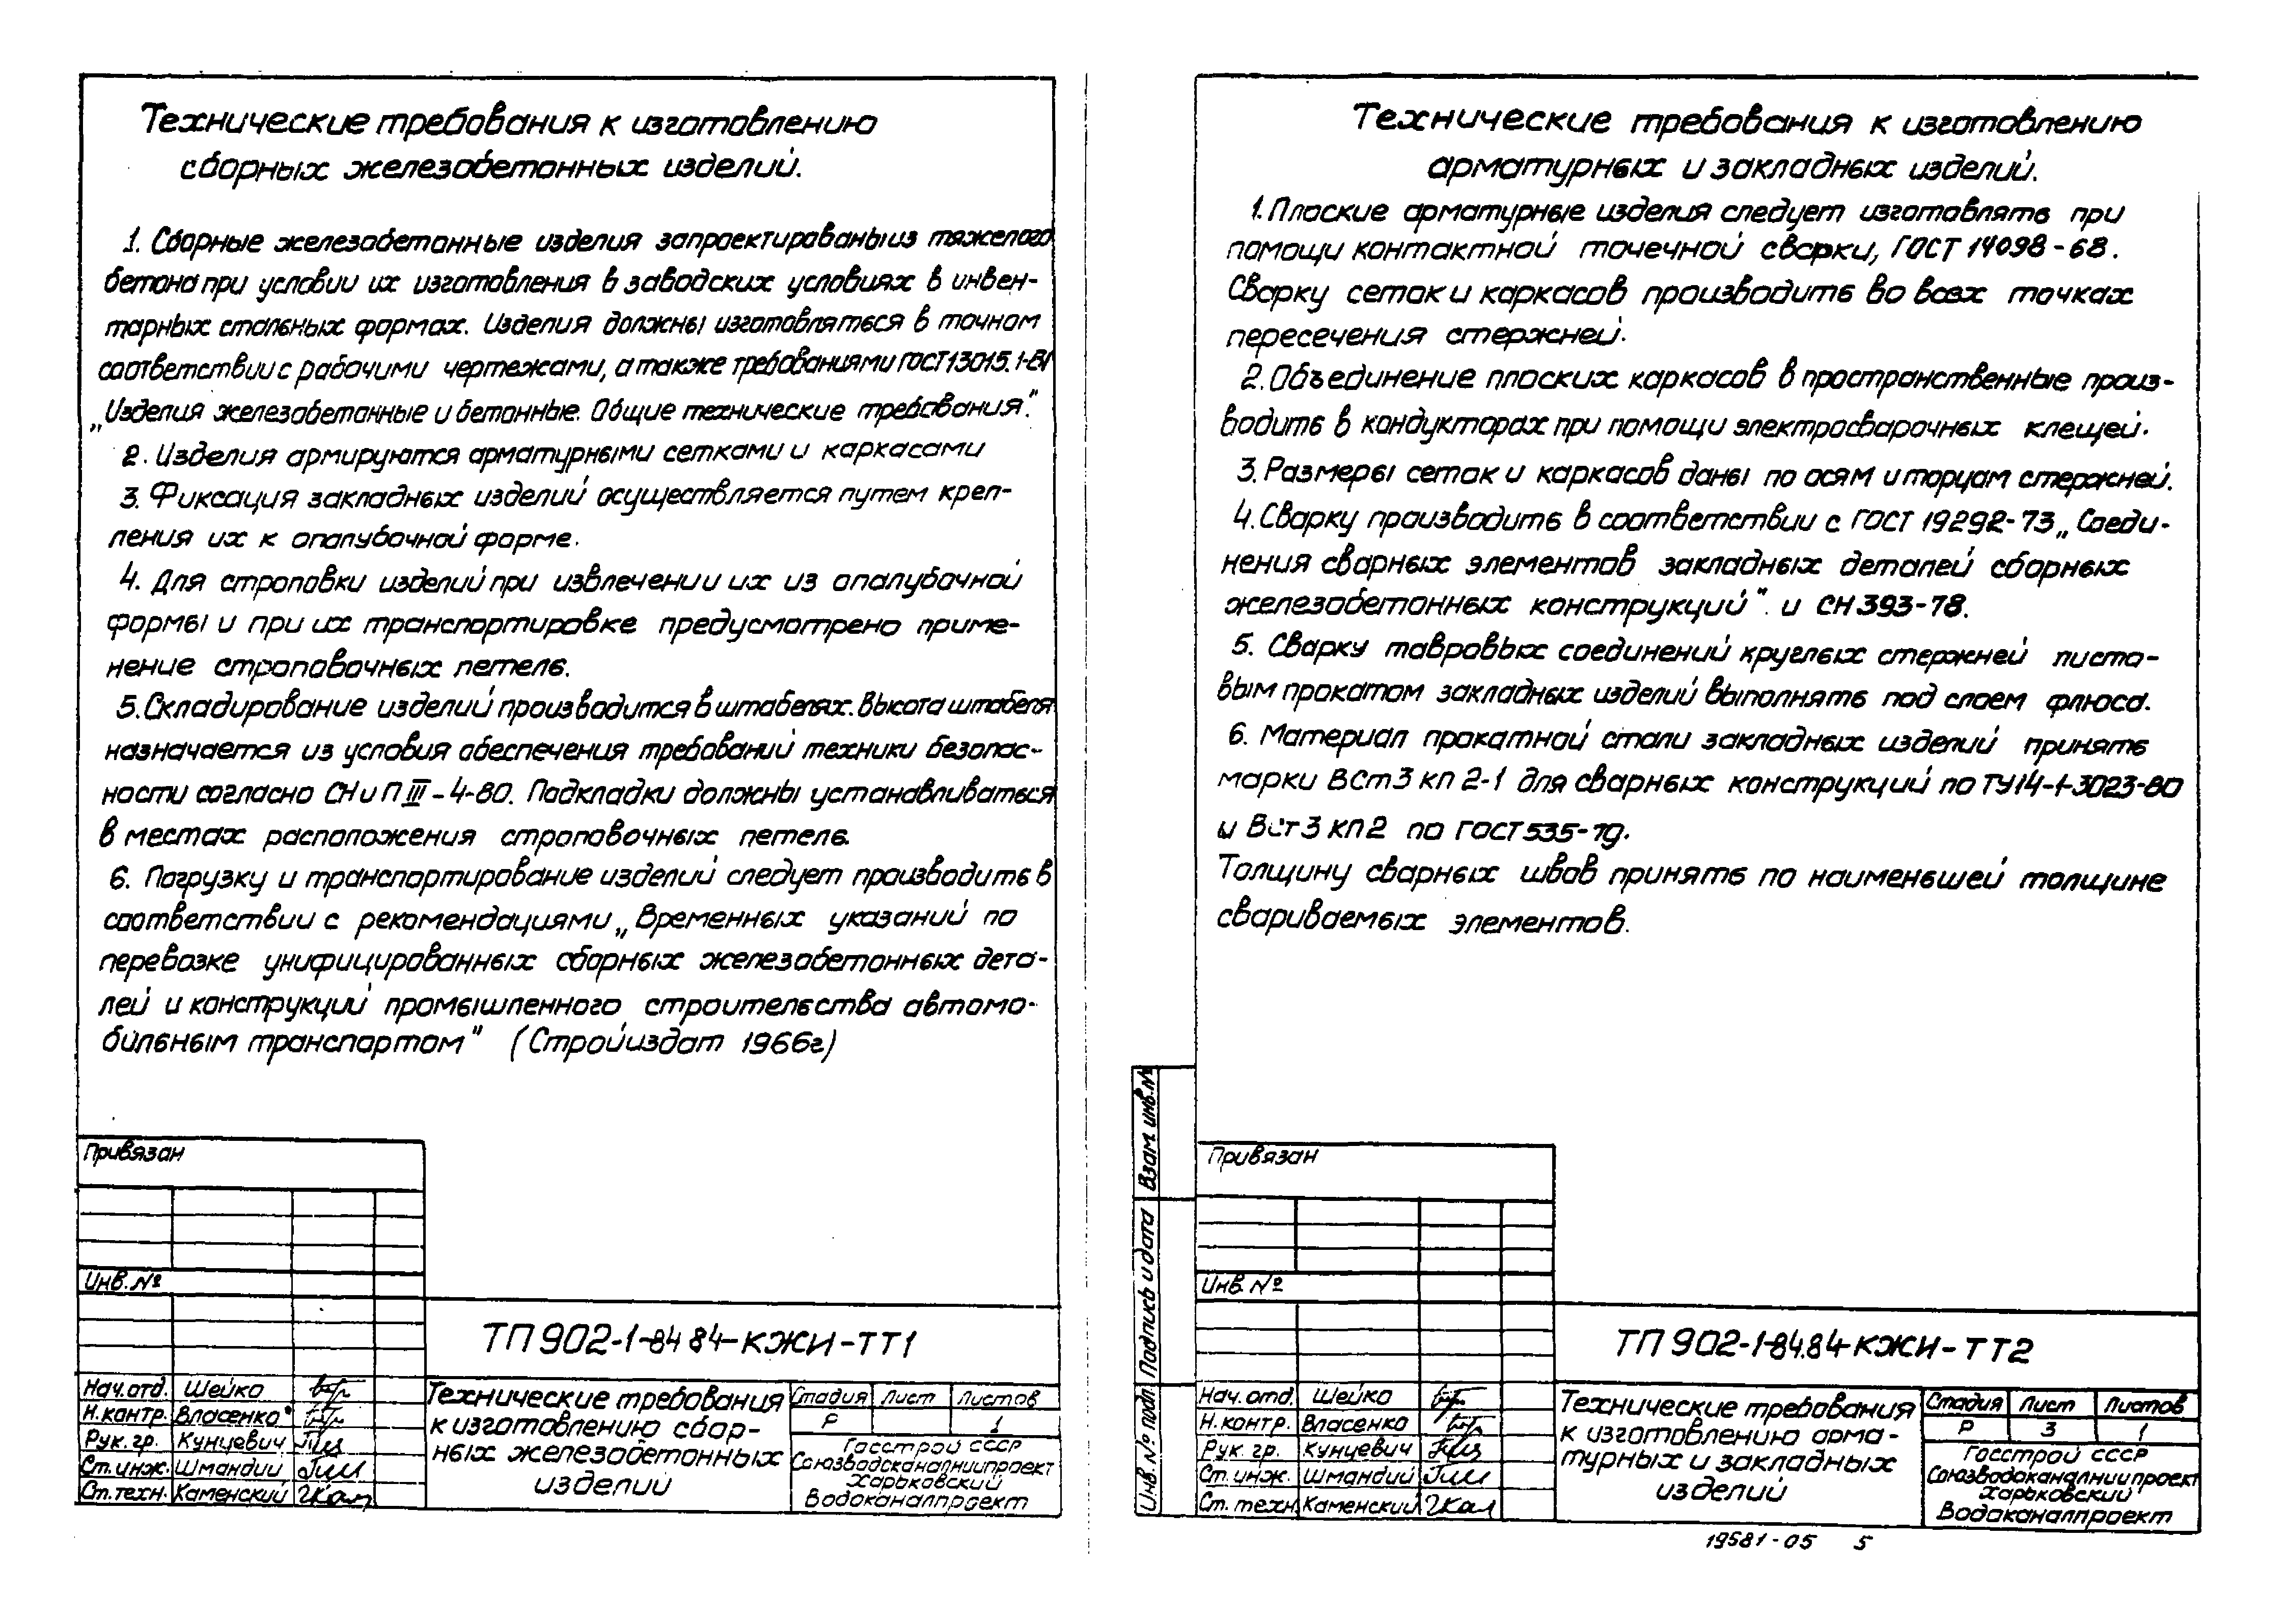 Технические требования к изготовлению
сборных железобетонных изделий.
1. Сборные железобетонные изделия запроектированы из тяжелого
бетона при условии их изготовления в заводских условиях в инвен-
тарных стальных формах. Изделия должны изготовляться в точном
соответствии с рабочими чертежами, а также требованиями ГОСТ 13015.1-81
„Изделия железобетонные и бетонные. Общие технические требования".
2. Изделия армируются арматурными сетками и каркасами
3. Фиксация закладных изделий осуществляется путем креп-
ления их к опалубочной форме.
4. Для строповки изделий при извлечении их из опалубочной
формы и при их транспортировке предусмотрено приме-
нение строповочных петель.
5. Складирование изделий производится в штабелях. Высота штабеля
назначается из условия обеспечения требований техники безопас-
ности согласно СНиП III-4-80. Подкладки должны устанавливаться
в местах расположения строповочных петель.
6. Погрузку и транспортирование изделий следует производить в
соответствии с рекомендациями „Временных указаний по
перевозке унифицированных сборных железобетонных дета-
лей и конструкций промышленного строительства автомо-
бильным транспортом" (Стройиздат 1966г)
Привязан
Инв. №
ТП 902-1-84 84-КЖИ-ТТ1
Нач. отд. Шейко
Н. контр. Власенко
Рук. гр. Кунцевич
Ст. инж. Шмандий
Ст. техн. Каменский
Технические требования
к изготовлению сбор-
ных железобетонных
изделий
Стадия Лист Листов
Р 1
Госстрой СССР
Союзводоканалниипроект
Харьковский
Водоканалпроект
Технические требования к изготовлению
арматурных и закладных изделий.
1. Плоские арматурные изделия следует изготовлять при
помощи контактной точечной сварки, ГОСТ 14098-68.
Сварку сеток и каркасов производить во всех точках
пересечения стержней.
2. Объединение плоских каркасов в пространственные произ-
водить в кондукторах при помощи электросварочных клещей.
3. Размеры сеток и каркасов даны по осям и торцам стержней.
4. Сварку производить в соответствии с ГОСТ 19292-73 „Соеди-
нения сварных элементов закладных деталей сборных
железобетонных конструкций". и СН 393-78.
5. Сварку тавровых соединений круглых стержней листо-
вым прокатом закладных изделий выполнять под слоем флюса.
6. Материал прокатной стали закладных изделий принять
марки ВСт3 кп 2-1 для сварных конструкций по ТУ14-1-3023-80
и ВСт3 КП2 по ГОСТ 535-79.
Толщину сварных швов принять по наименьшей толщине
свариваемых элементов.
Взам. инв.№
Подпись и дата
Инв. № подл.
Привязан
Инв. №
ТП 902-1-84.84-КЖИ-ТТ2
Нач. отд. Шейко
Н. контр. Власенко
Рук. гр. Кунцевич
Ст. инж. Шмандий
Ст. техн. Каменский
Технические требования
к изготовлению арма-
турных и закладных
изделий
Стадия Лист Листов
Р 3 1
Госстрой СССР
Союзводоканалниипроект
Харьковский
Водоканалпроект
19581-05 5